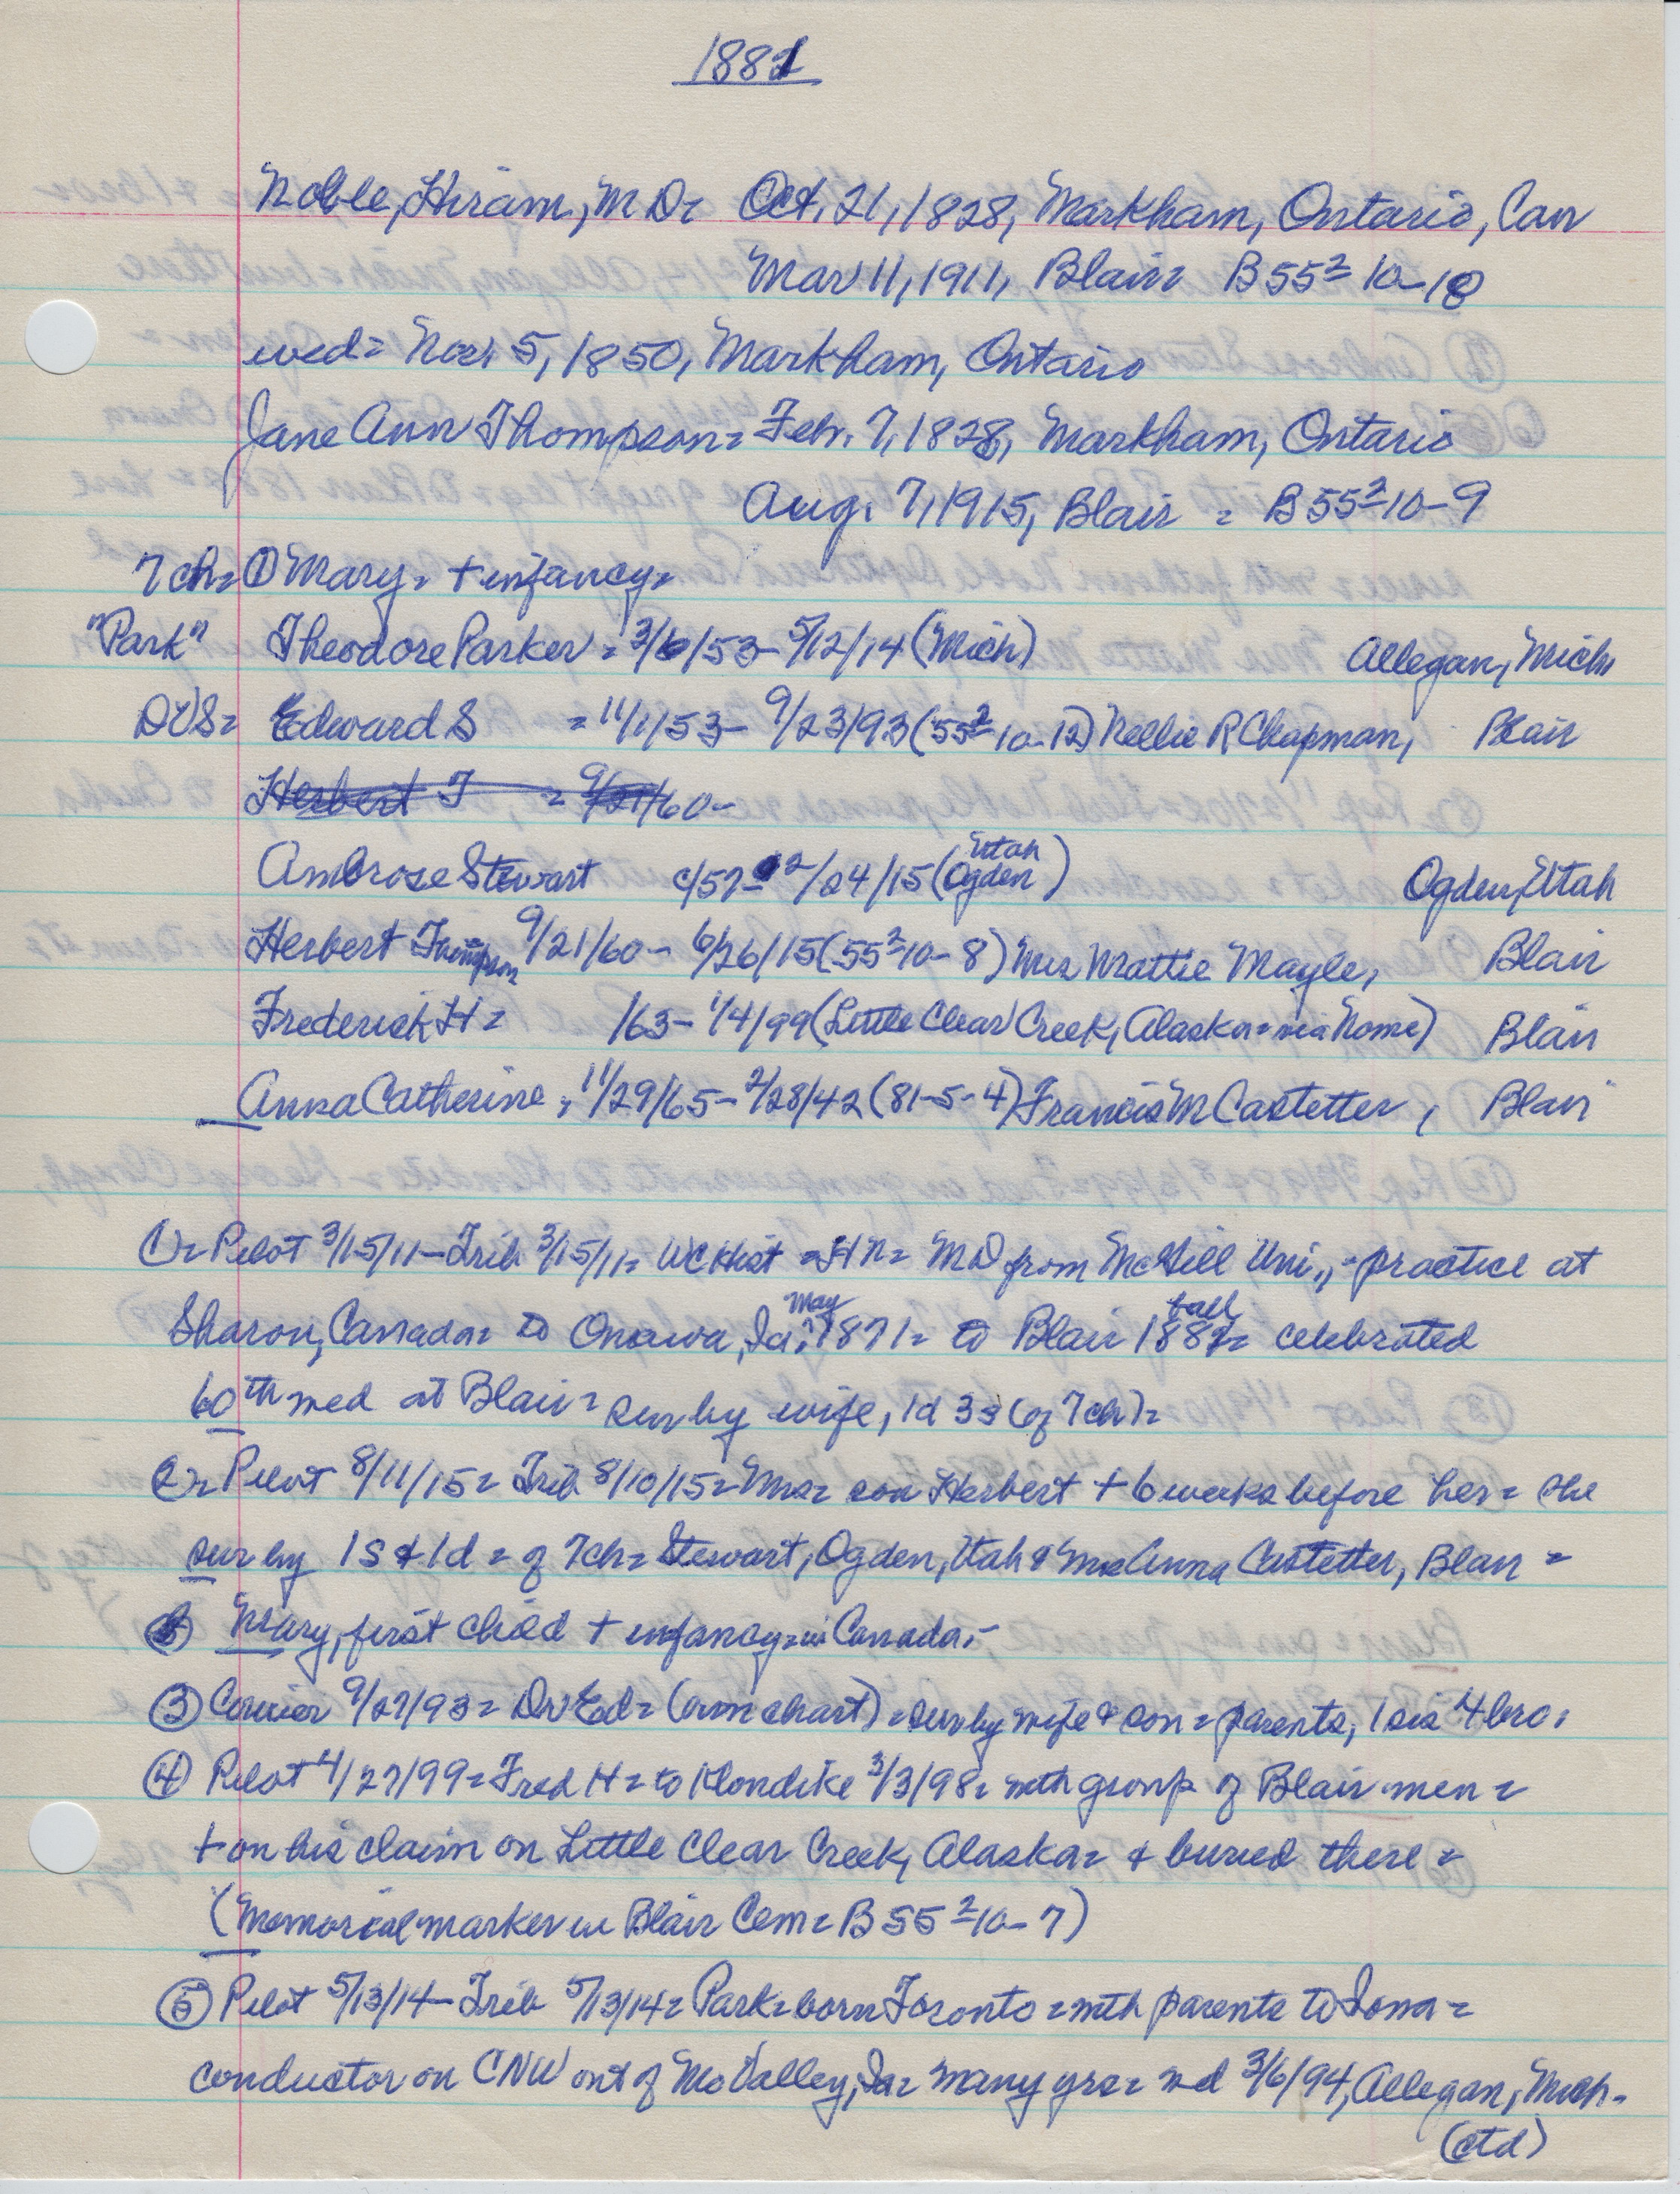 1881
Noble, Hiram, MD= Oct. 21, 1828, Markham, Ontario, Can
Mar 11, 1911, Blair= B 55² 10-10
wed= Nov. 5, 1850, Markham, Ontario
Jane Ann Thompson= Feb. 7, 1828, Markham, Ontario
Aug. 7, 1915, Blair = B 55² 10-9
7 ch= ① Mary= + infancy=
"Park" Theodore Parker = 3/6/53- 5/12/14 (Mich) Allegan, Mich
DVS= Edward S = 11/1/53- 9/23/93 (55² 10-12) Nellie R Chapman, Blair
Herbert T = 9/21/60-
Ambrose Stewart c/57- 12/24/15 (Ogden Utah) Ogden, Utah
Herbert Thompson 9/21/60- 6/26/15 (55² 10-8) Mrs Mattie Mayle, Blair
Frederick H= /63- 1/4/99 (Little Clear Creek, Alaska= via Nome) Blair
Anna Catherine, 11/29/65- 2/28/42 (81-5-4) Francis M Castetter, Blair
①= Pilot 3/15/11- Trib 3/15/11= WC Hist = HN= MD from McGill Uni., - practice at
Sharon, Canada= to Onawa, Ia, May 1871= to Blair fall 1881= celebrated
60th wed at Blair= sur by wife, 1d 3s (of 7ch)=
2= Pilot 8/11/15= Trib 8/10/15= Mrs= son Herbert + 6 weeks before her= she
sur by 1S & 1d = of 7ch= Stewart, Ogden, Utah & Mrs Anna Castetter, Blair =
Mary, first child + infancy= in Canada,-
③ Courier 9/27/93= Dr Ed= (own chart) = sur by wife & son = parents, 1 sis 4 bro.
④ Pilot 4/27/99= Fred H= to Klondike 3/3/98= with group of Blair men=
+ on his claim on Little Clear Creek, Alaska= & buried there=
(Memorial marker in Blair Cem= B 55² 10-7)
⑤ Pilot 5/13/14- Trib 5/13/14= Park= born Toronto= with parents to Iowa=
conductor on CNW out of Mo Valley, Ia= many yrs= wd 3/6/94, Allegan, Mich.
(ctd)